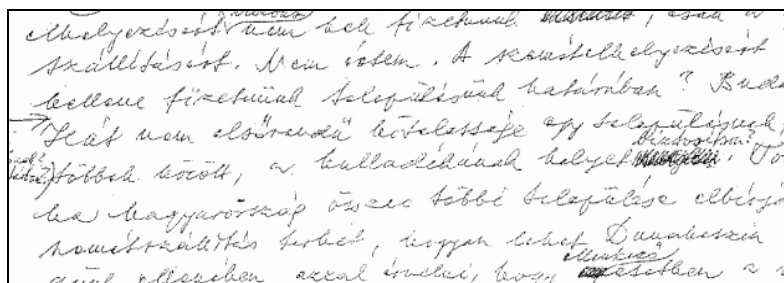 elhelyezésért nem kell fizetnünk, csak a
szállításért. Nem értem. A szemételhelyezésért
kellene fizetnünk településünk határában? Buda
Hát nem elsőrendű kötelessége egy településnek,
többek között, a hulladékának helyet biztosítson? 
ha Magyarország összes többi települése elbírja
szemétszállítás terhét, hogyan lehet Dunakeszin
ellenében azzal érvelni, hogy esetben a